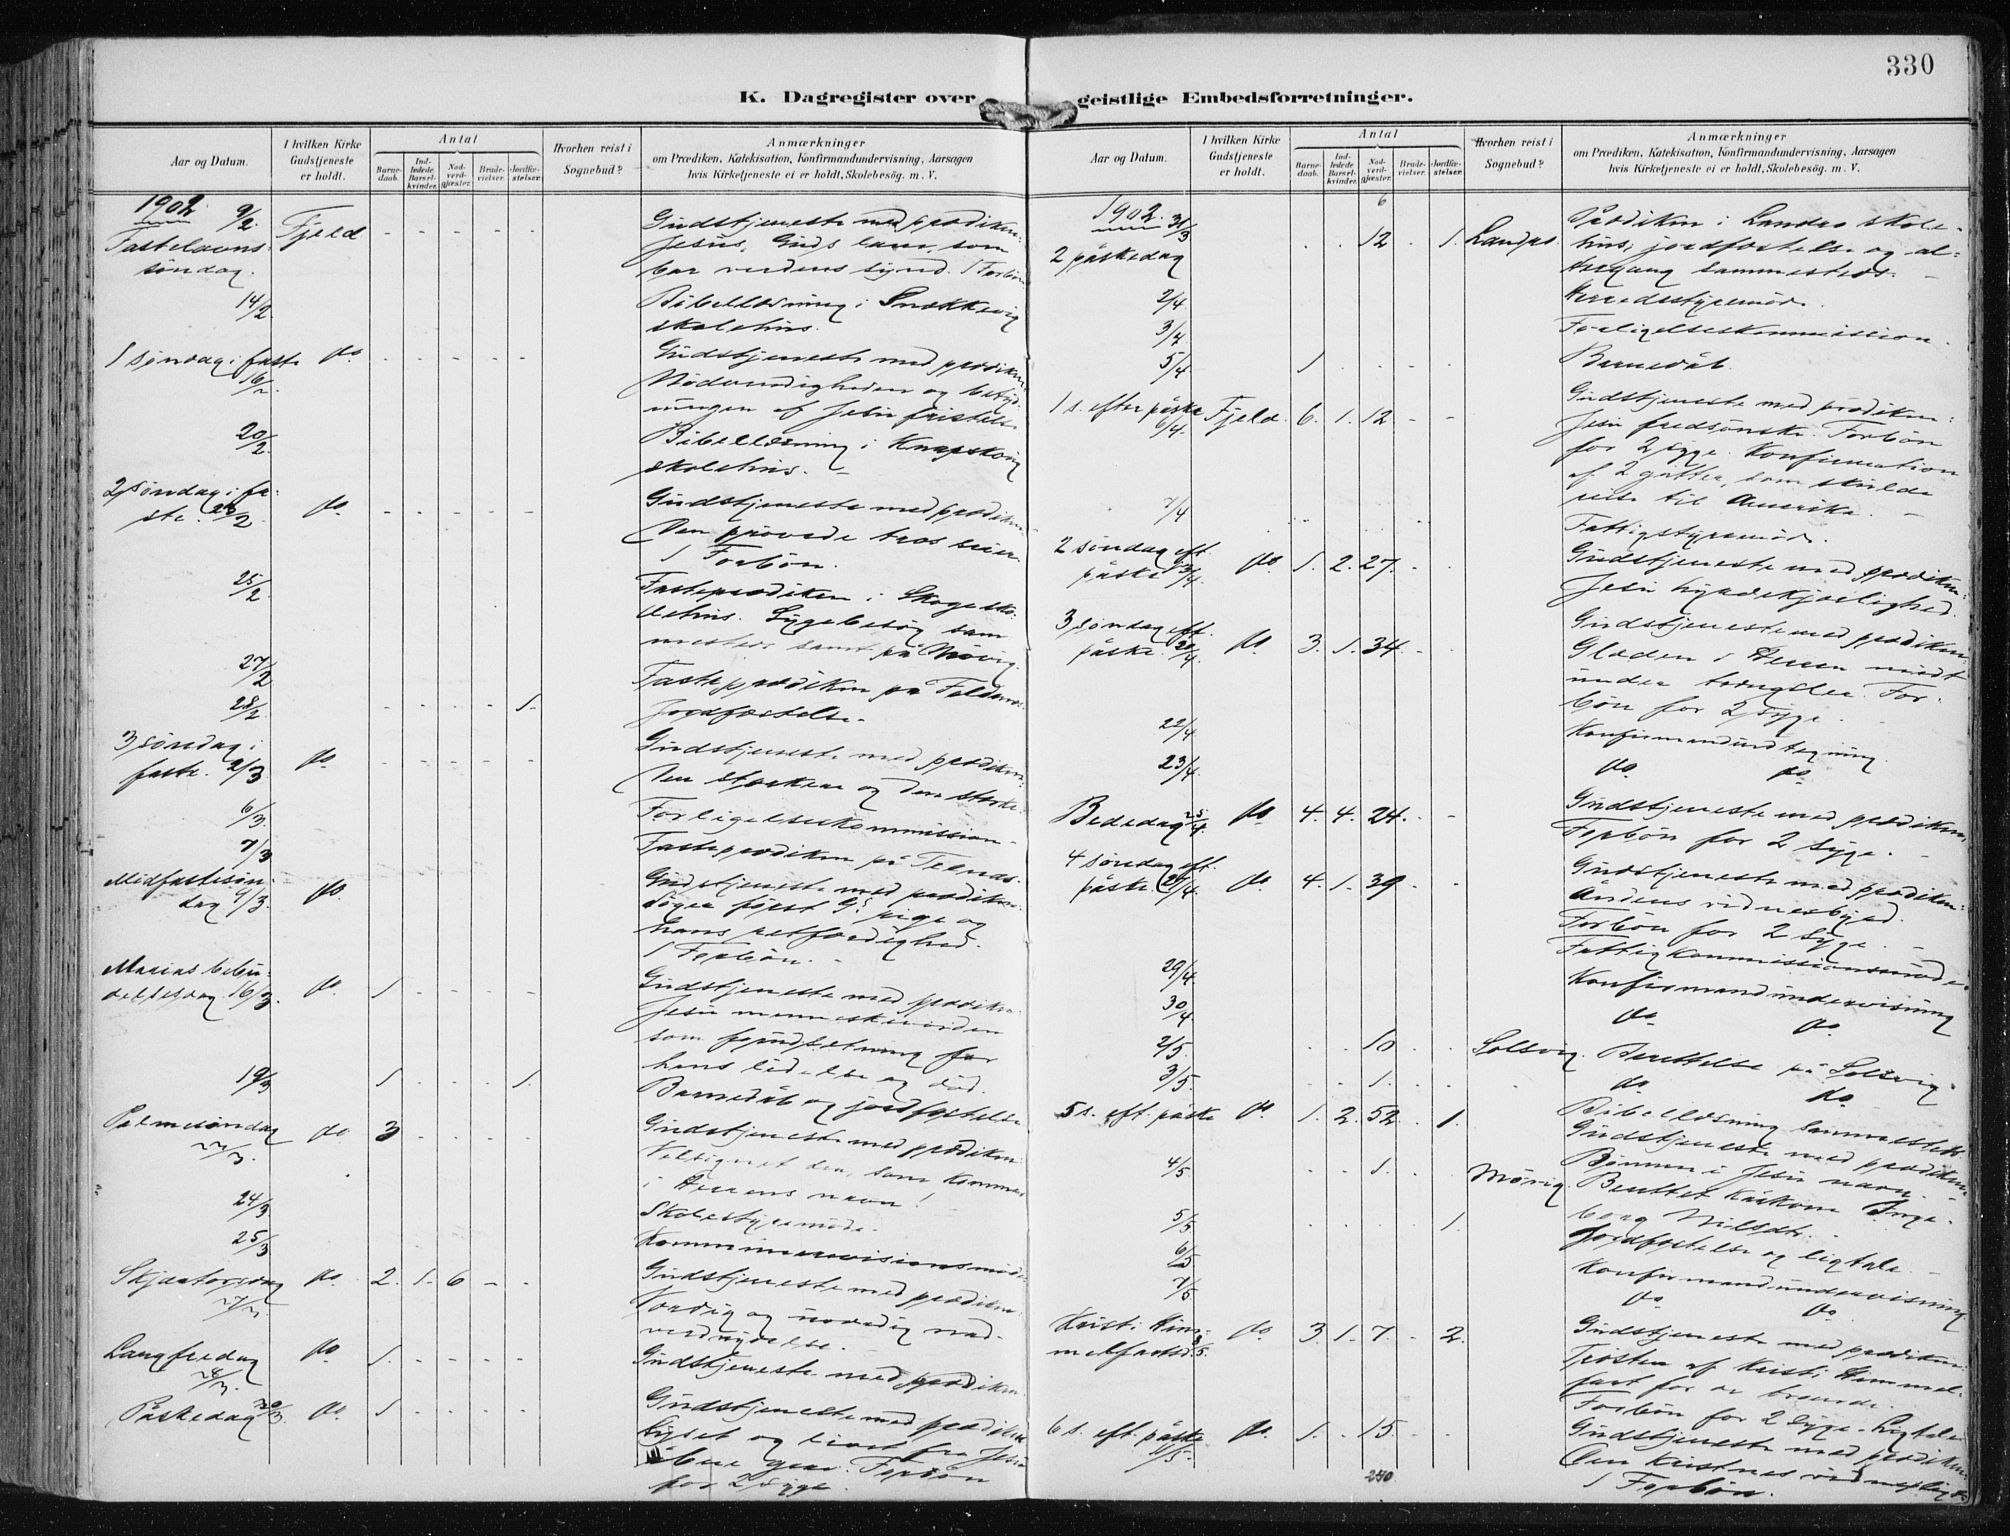 330
K. Dagregister over geistlige Embedsforretninger.
Aar og Datum.
I hvilken Kirke Gudstjeneste er holdt.
Antal
Barnedaab.
Indledede Barselkvinder.
Nadverdgjæster.
Brudevielser.
Jordfæstelser.
Hvorhen reist i Sognebud?
Anmærkninger
om Prædiken, Katekisation, Konfirmandundervisning, Aarsagen
hvis Kirketjeneste ei er holdt, Skolebesøg. m. V.
1902. 9/2 Fjeld Gudstjeneste med prædiken:
Fastelavns- Jesus, Guds lam, som
søndag. bar verdens synd. 1 Forbøn
14/2 Bibellæsning i Snekkevig
skolehus.
1 søndag i faste do Gudstjeneste med prædiken:
16/2. Nødvendigheden og betyd-
ningen af Jesu fristelse
20/2 Bibellæsning i Knapskog
skolehus.
2 søndag i fa- do. Gudstjeneste med prædiken
ste. 23/2 Den prøvede tros seier
1 Forbøn.
25/2 Fasteprædiken i Skogesko-
lehus. Sygebesøg sam
mesteds samt på
27/2 Fasteprædiken på
28/2 1. Jordfæstelse.
3 søndag i do. Gudstjeneste med prædiken:
faste. 2/3 Den stærke og den stærke-
6/3. Forligelseskommission.
7/3 Fasteprædiken på Telnæs.
Midfastesøn- do. Gudstjeneste med prædiken:
dag 9/3. Søger først Gs rige og
hans retfærdighed.
1 Forbøn.
Marias bebu- do. 1 Gudstjeneste med prædiken:
delsesdag 16/3. Jesu menneskevorden
som forudsetning for
hans lidelse og død.
19/3 1 1. Barnedåb og jordfæstelse
Palmesøndag do 3 Gudstjeneste med prædiken:
23/3. Velsignet den, som kommer
i Herrens navn!
24/3 Skolestyremøde.
25/3
Skjærtorsdag do. 2. 1. 6 Gudstjeneste med prædiken
27/3 Værdig og uværdig nad-
verdnydelse.
Langfredag do 1. Gudstjeneste med prædiken
28/3.
Påskedag 30/3. do. 1 Gudstjeneste med prædiken
Lyset og livet fra Jesu
åbne grav. Forbøn
for 2 syge.
Aar og Datum.
I hvilken Kirke Gudstjeneste er holdt.
Antal
Barnedaab.
Indledede Barselkvinder.
Nadverdgjæster.
Brudevielser.
Jordfæstelser.
Hvorhen reist i Sognebud?
Anmærkninger
om Prædiken, Katekisation, Konfirmandundervisning, Aarsagen
hvis Kirketjeneste ei er holdt, Skolebesøg. m. V.
6
1902. 31/3 12 1. Landro. Prædiken i Landro skole-
2 påskedag hus, jordfæstelse og al-
tergang sammesteds.
2/4 Herredsstyremøde.
3/4 Forligelseskommission.
5/4 1 Barnedåb.
1 s. efter påske Fjeld. 6. 1. 12 Gudstjeneste med prædiken:
6/4. Jesu fredsønske. Forbøn
for 2 syge. Konfirmation
af 2 gutter, som skulde
reise til Amerika.
7/4 Fattigstyremøde.
2 søndag eft. do. 1. 2. 27. Gudstjeneste med prædiken:
påske 13/4. Jesu hyrdekjærlighed.
3 søndag eft. do. 3. 1. 34 Gudstjeneste med prædiken:
påske. 20/4. Glæden i Herren midt
under trængsler. For-
bøn for 2 syge.
22/4 Konfirmandindtegning
23/4 do do
Bededag 25/4. do 4. 4. 24. Gudstjeneste med prædiken,
Forbøn for 2 syge.
4 søndag eft. do. 4. 1. 39 Gudstjeneste med prædiken:
påske 27/4. Åndens vidnesbyrd.
Forbøn for 2 syge.
Fattigkommissionsmøde
29/4 Konfirmandundervisning
30/4 do do
2/5 10 Solsvig. Berettelse på Solsvig
3/5. 1. do do
5 s. eft. påske do. 1. 2. 52. 1. Bibellæsning sammesteds.
Gudstjeneste med prædiken
4/5 1. Bønnen i Jesu navn.
Berettet Inge-
borg Nilsdtr.
5/5 1. Jordfæstelse og ligtale.
6/5 Konfirmandundervisning
7/5 do do
Kristi Him- do. 3. 1. 7. 2. Gudstjeneste med prædiken:
melfartsd. 8/5. Trøsten af Kristi Himmel-
fart for de troende.
Forbøn for 2 syge. Ligtale
6 s. eft. påske do. 1. 15. Gudstjeneste med prædiken
11/5. Den kristnes vidnepligt
1 Forbøn.
240